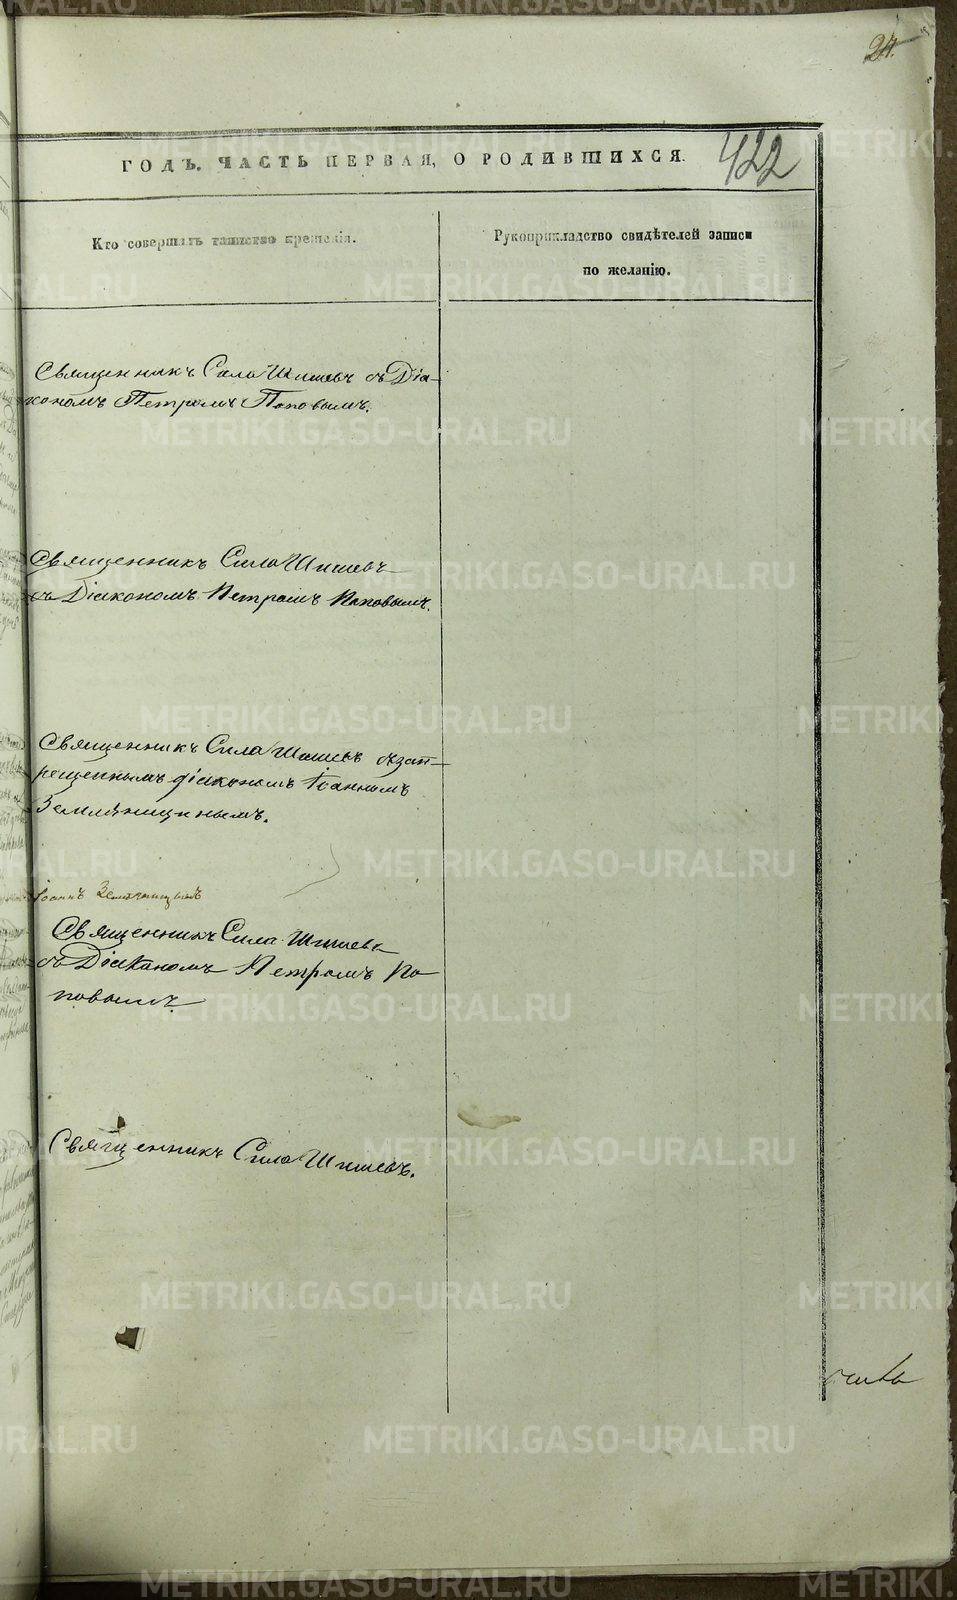 24.
422
ГОДЪ. ЧАСТЬ ПЕРВАЯ, О РОДИВШИХСЯ.
Кто совершалъ таинство крещенія.
Рукоприкладство свидѣтелей записи
по желанію.
Священникъ Сила Шишевъ съ Діа-
кономъ Петромъ Поповымъ.
Священникъ Сила Шишевъ
съ Діакономъ Петромъ Поповымъ.
Священникъ Сила Шишевъ съ зап-
рещеннымъ діакономъ Іоанномъ
Земляницинымъ.
Іоаннъ
Священникъ Сила Шишевъ
съ Діакономъ Петромъ По
повымъ.
Священникъ Сила Шишевъ.
METRIKI.GASO-URAL.RU